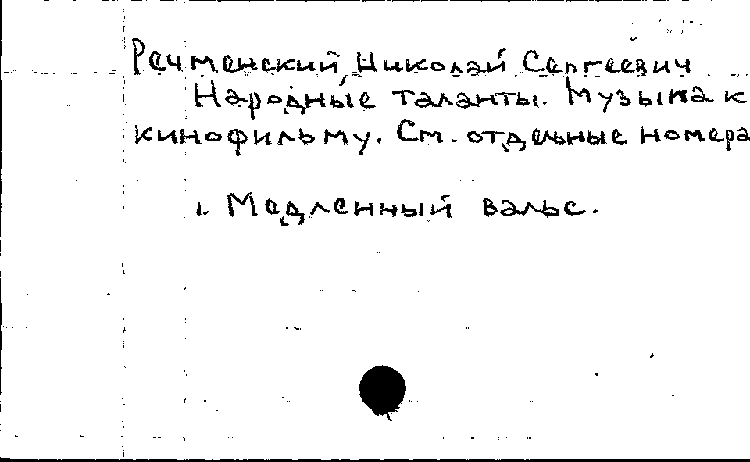 Речменский, Николай Сергеевич
Народные таланты. Музыка к
кинофильму. См. отдельные номера
1. Медленный вальс.